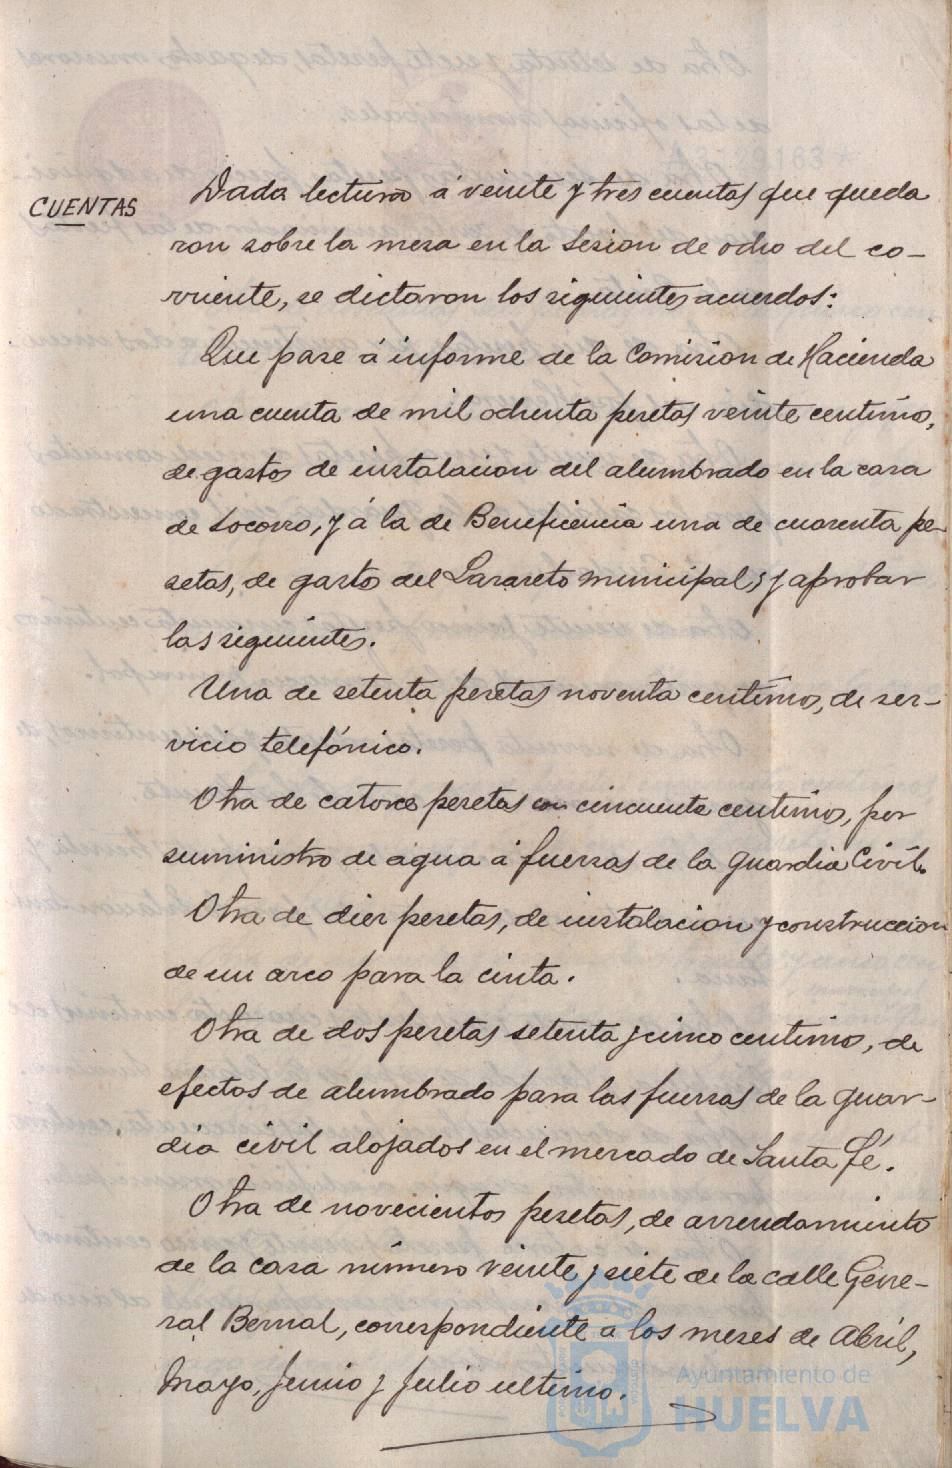 CUENTAS
Dada lectura á veinte y tres cuentas que queda
ron sobre la mesa en la Sesion de ocho del co-
rriente, se dictaron los siguientes acuerdos:
Que pase á informe de la Comision de Hacienda
una cuenta de mil ochenta pesetas veinte centimos,
de gastos de instalacion del alumbrado en la casa
de Socorro, y á la de Beneficencia una de cuarenta pe-
setas, de gasto del Lazareto municipal; y aprobar
las siguientes.
Una de setenta pesetas noventa centimos, de ser-
vicio telefónico.
Otra de catorce pesetas con cincuenta centimos, por
suministro de agua á fuerzas de la Guardia Civil.
Otra de diez pesetas, de instalacion y construccion
de un arco para la cinta.
Otra de dos pesetas setenta y cinco centimos, de
efectos de alumbrado para las fuerzas de la guar-
dia civil alojados en el mercado de Santa Fé.
Otra de novecientos pesetas, de arrendamiento
de la casa número veinte y siete de la calle Gene-
ral Bernal, correspondiente a los meses de Abril,
Mayo, Junio y Julio ultimo.
Ayuntamiento de
HUELVA